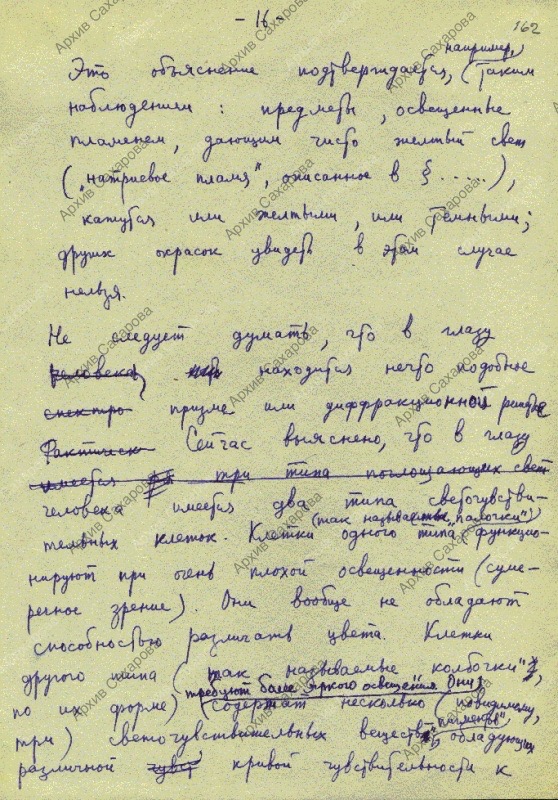 - 16 -
162
например,
Это объяснение подтверждается, (таким
наблюдением: предметы, освещенные
пламенем, дающим чисто желтый свет
("натриевое пламя", описанное в § .....),
кажутся или желтыми, или темными;
других окрасок увидеть в этом случае
нельзя.
Не следует думать, что в глазу
человека находится нечто подобное
спектро призме или диффракционной решетке
Фактическ Сейчас выяснено, что в глазу
имеется три типа поглощающих свет
человека имеется два типа светочувстви-
(так называемые "палочки")
тельных клеток. Клетки одного типа функцио-
нируют при очень плохой освещенности (суме-
речное зрение). Они вообще не обладают
способностью различать цвета. Клетки
другого типа (так называемые колбочки",
требуют более яркого освещения. Они
по их форме) содержат несколько (повидимому,
"пигментов"
три) светочувствительных веществ, обладающих
различной чувст кривой чувствительности к
Архив Сахарова